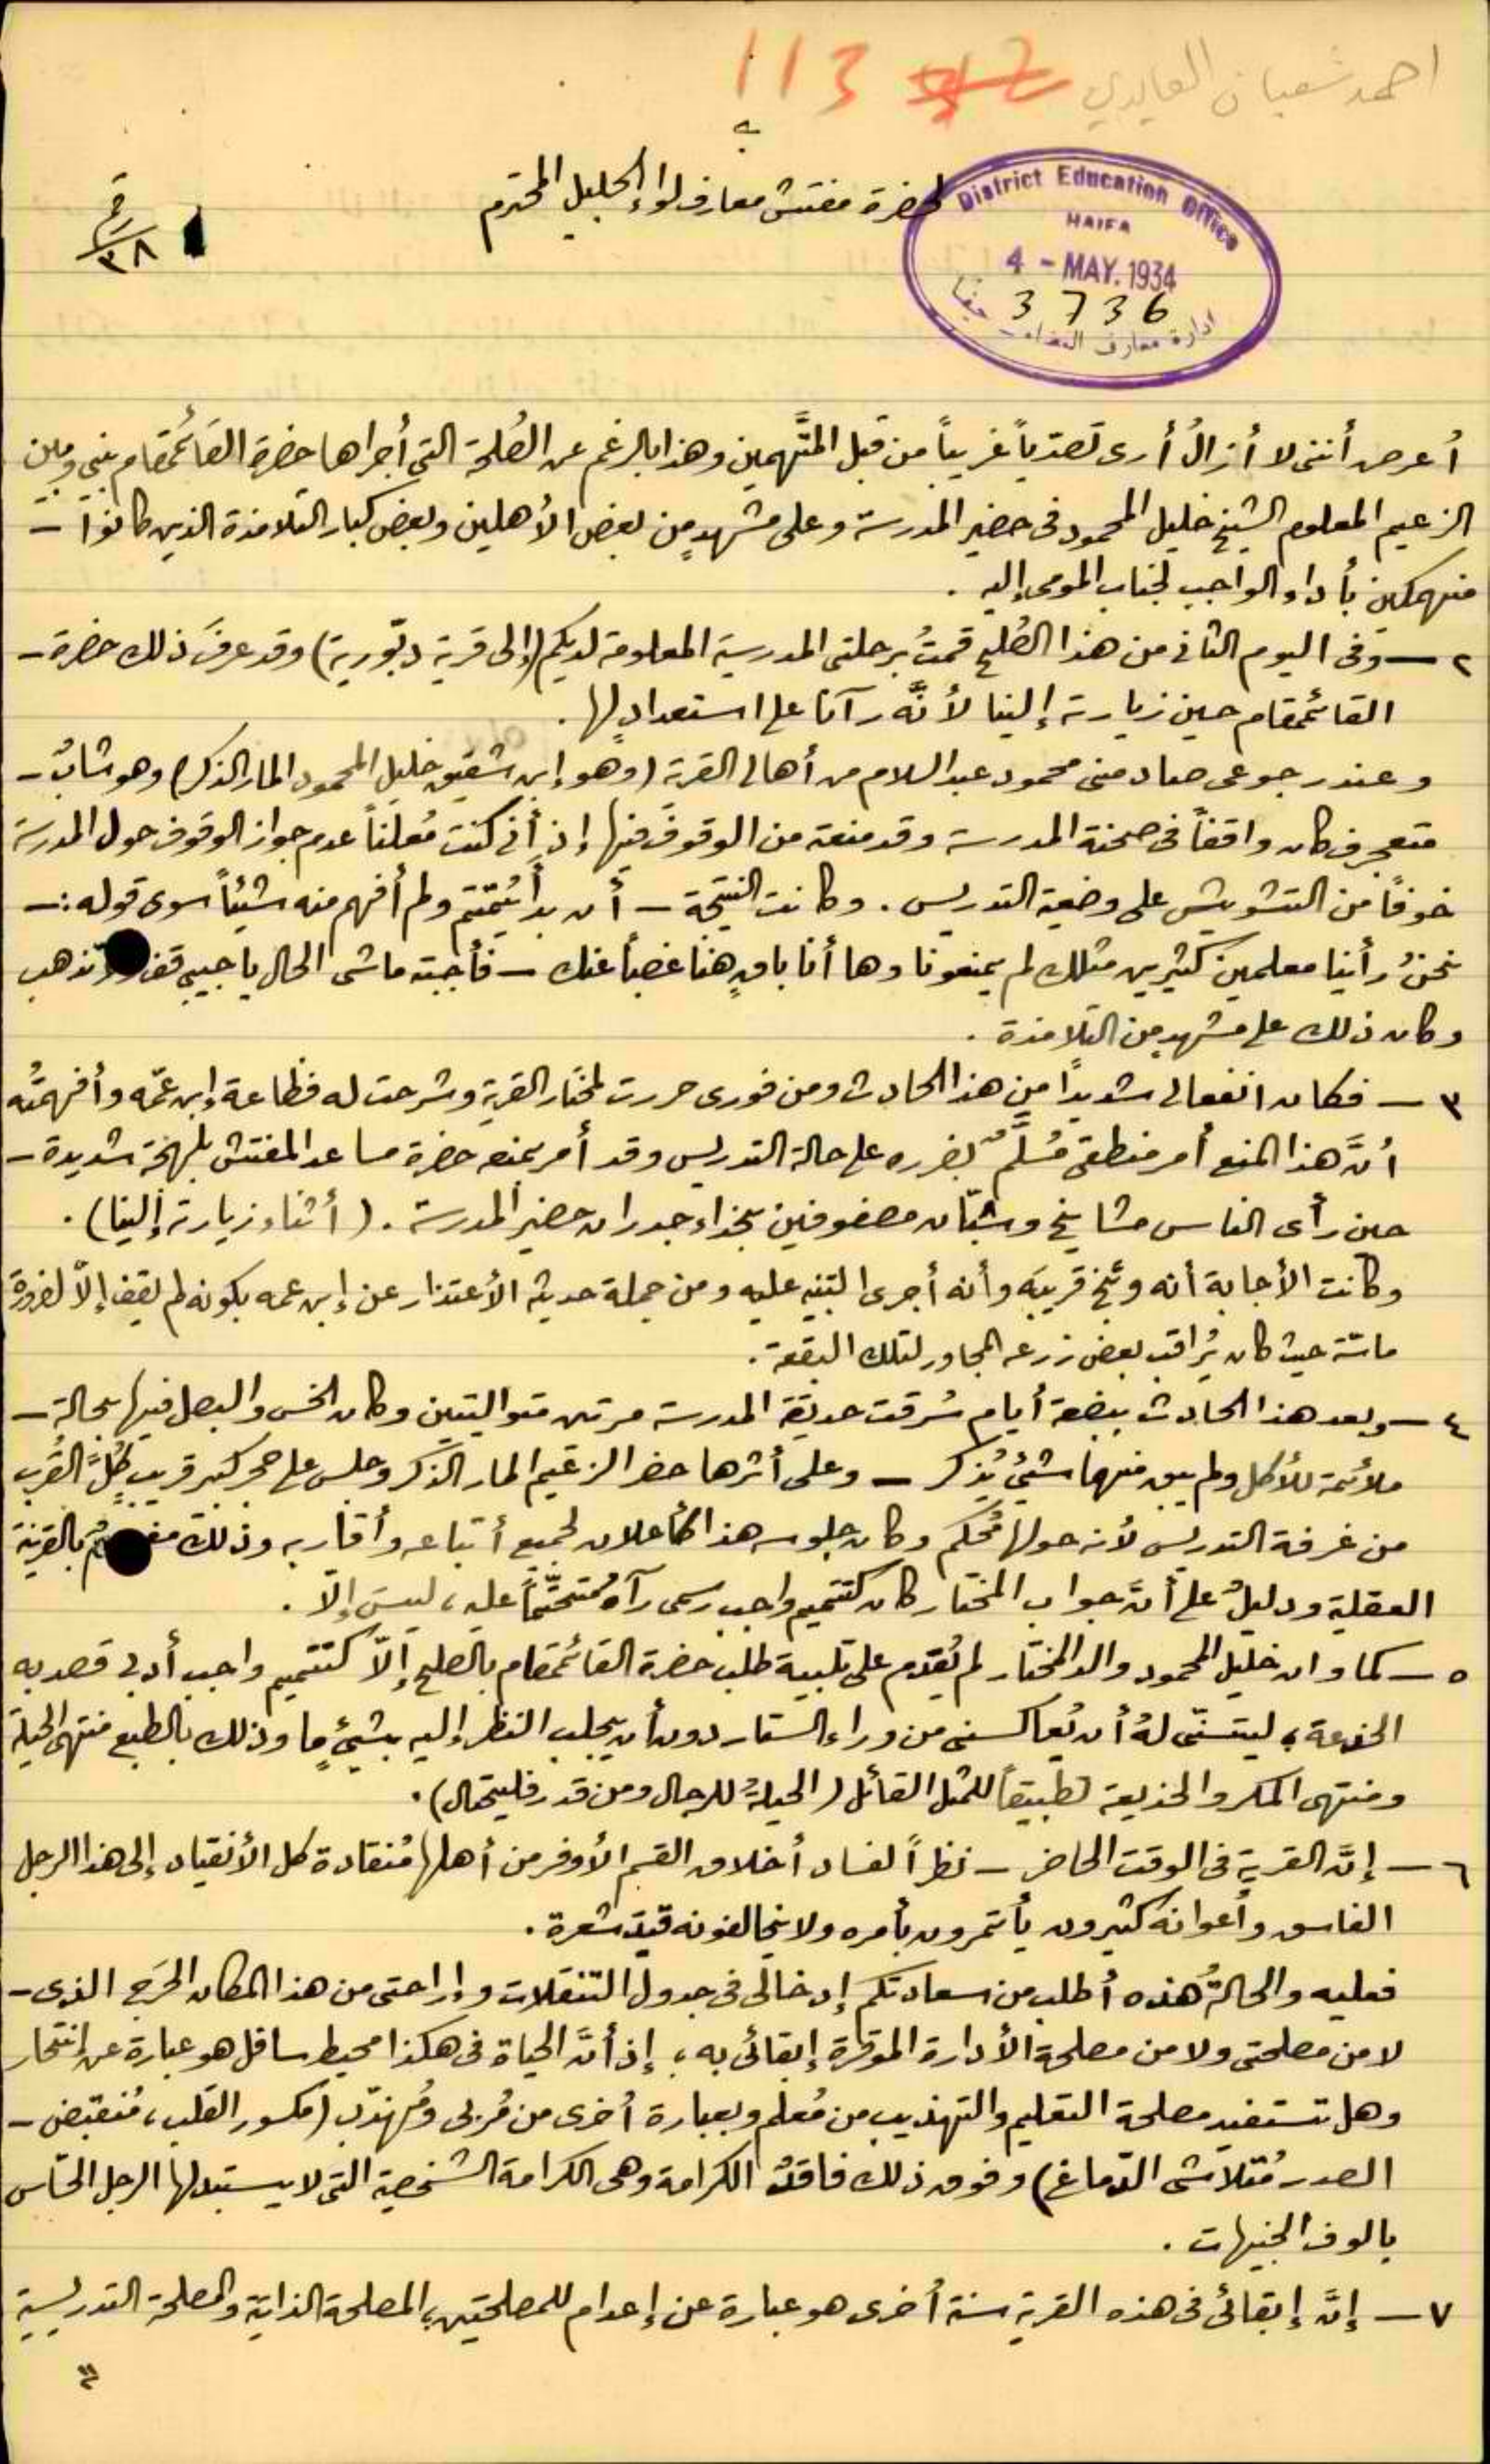 احمد شعبان العايدي
113
لحضرة مفتش معارف لواء الجليل المحترم
District Education Office
HAIFA
4 - MAY. 1934
3736
ادارة معارف القضاء - حيفا
٣٨
أعرض أننى لا أزالُ أرى تصدّياً غريباً من قبل المتَّهمين وهذا بالرغم عن الصُلحة التى أجراها حضرة القائمقام بينى وبين
الزعيم المعلوم الشيخ خليل المحمود فى حضير المدرسة وعلى مشهدٍ من بعض الأهلين وبعض كبار التلامذة الذين كانوا -
منهمكين بأداء الواجب لجناب المومى إليه .
٢ - وفى اليوم الثانى من هذا الصُلح قمتُ برحلتى المدرسية المعلومة لديكم (إلى قرية دبّورية) وقد عرفَ ذلك حضرة -
القائمقام حين زيارته إلينا لأنَّه رآنا على استعدادٍ لها .
وعند رجوعى صادمنى محمود عبد السلام من أهالى القرية (وهو إبن شقيق خليل المحمود المار الذكر) وهو شابٌ -
متعجرف كان واقفاً فى صحنة المدرسة وقد منعته من الوقوف فيها إذ أنى كنت مُعلناً عدم جواز الوقوف حول المدرسة
خوفاً من التشويش على وضعية التدريس . وكانت النتيجة - أن بدأ يُتمتم ولم أفهم منه شيئاً سوى قوله :-
نحنُ رأينا معلمين كثيرين مثلك لم يمنعونا وها أنا باقٍ هنا غصباً عنك - فأجبته ماشى الحال يا حبيبى قف ولا تذهب
وكان ذلك على مشهدٍ من التلامذة .
٣ - فكان انفعالى شديداً من هذا الحادث ومن فورى حررت لمختار القرية وشرحت له فظاعة إبن عمّه وأفهمتُه
أنَّ هذا المنع أمر منطقى مُسلَّمٌ بضرره على حالة التدريس وقد أمر بمنعه حضرة مساعد المفتش بلهجة شديدة -
حين رأى الناس مشايخ وشبّان مصفوفين بحذاء جدران حضير المدرسة . (أثناء زيارته إلينا) .
وكانت الأجابة أنه وبّخ قريبَه وأنه أجرى التنبيه عليه ومن جملة حديثه الأعتذار عن إبن عمه بكونه لم يقف إلاّ لضرورة
ماسّة حيث كان يُراقب بعض زرعه المجاور لتلك البقعة .
٤ - وبعد هذا الحادث ببضعة أيام سُرقت حديقة المدرسة مرتين متواليتين وكان الخس والبصل فيها بحالة -
ملائمة للأكل ولم يبق منها شيئٌ يُذكر - وعلى أثرها حضر الزعيم المار الذكر وجلس على حجر كبير قريب كُلَّ القُرب
من غرفة التدريس لأنه حولها مُحكم وكان جلوسه هذا كأعلان لجميع أتباعه وأقاربه وذلك بالقرينة
العقلية ودليلٌ على أنَّ جواب المختار كان كتتميم واجب رسمى رآه مُتحتّماً عليه ، ليسَ إلاّ .
٥ - كما وان خليل المحمود والد المختار لم يُقدم على تلبية طلب حضرة القائمقام بالصلح إلاّ كتتميم واجب أدبى قصد به
الخدعة ؛ ليتسنّى لهُ أن يُعاكسنى من وراء الستار دون أن يجلب النظر إليه بشيئٍ ما وذلك بالطبع منتهى الحيلة
ومنتهى المكر والخديعة تطبيقاً للمثل القائل (الحيلةُ للرجال ومن قدر فليحتال) .
٦ - إنَّ القرية فى الوقت الحاضر - نظراً لفساد أخلاق القسم الأوفر من أهلها مُنقادة كل الأنقياد إلى هذا الرجل
الفاسق وأعوانه كثيرون يأتمرون بأمره ولا يخالفونه قيدَ شعرة .
فعليه والحالةُ هذه أطلب من سعادتكم إدخالى فى جدول التنقلات وإراحتى من هذا المكان الحَرِج الذى -
لا من مصلحتى ولا من مصلحة الأدارة الموقرة إبقائى به ، إذ أنَّ الحياة فى هكذا محيط سافل هو عبارة عن إنتحار
وهل تستفيد مصلحة التعليم والتهذيب من مُعلم وبعبارة أخرى من مُربى ومُهذّب (مكسور القلب ، مُنقبض -
الصدر مُتلاشى الدّماغ) وفوق ذلك فاقدُ الكرامة وهى الكرامة الشخصية التى لا يستبدلها الرجل الحسّاس
بالوف الجنيهات .
٧ - إنَّ إبقائى فى هذه القرية سنة أُخرى هو عبارة عن إعدام للمصلحتين ؛ المصلحة الذاتية والمصلحة التدريسية